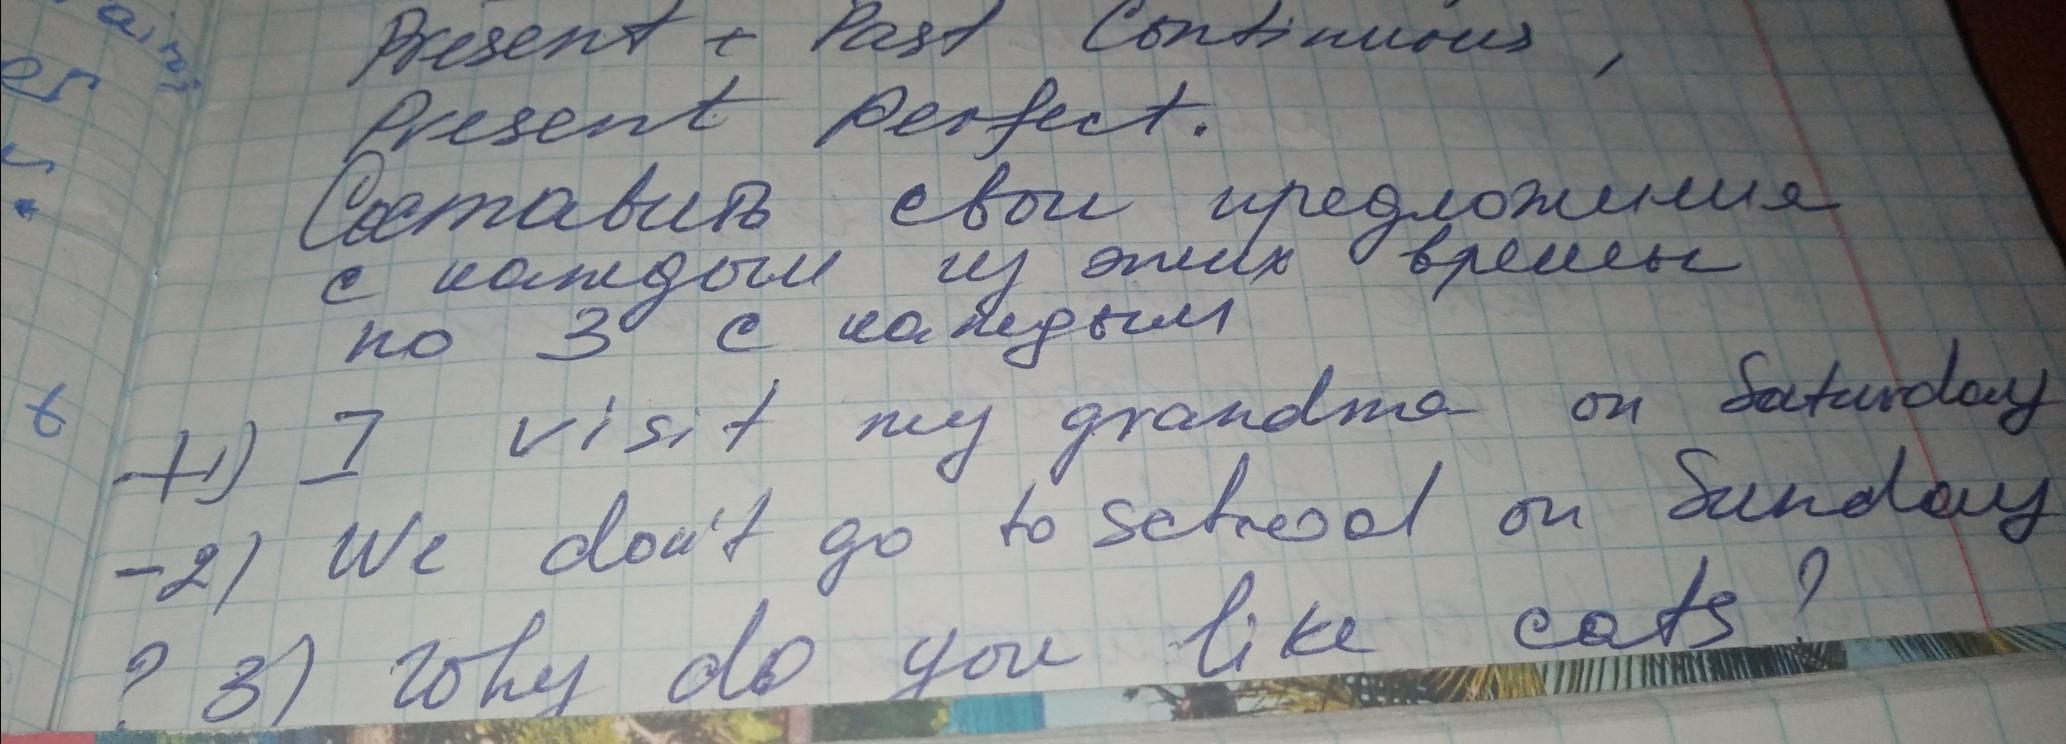 Present + Past Continuous,
Present Perfect.
Составить свои предложения
с каждым из этих времен
по 3 с каждым
+1) I visit my grandma on Saturday
-2) We don't go to school on Sunday
? 3) Why do you like cats?